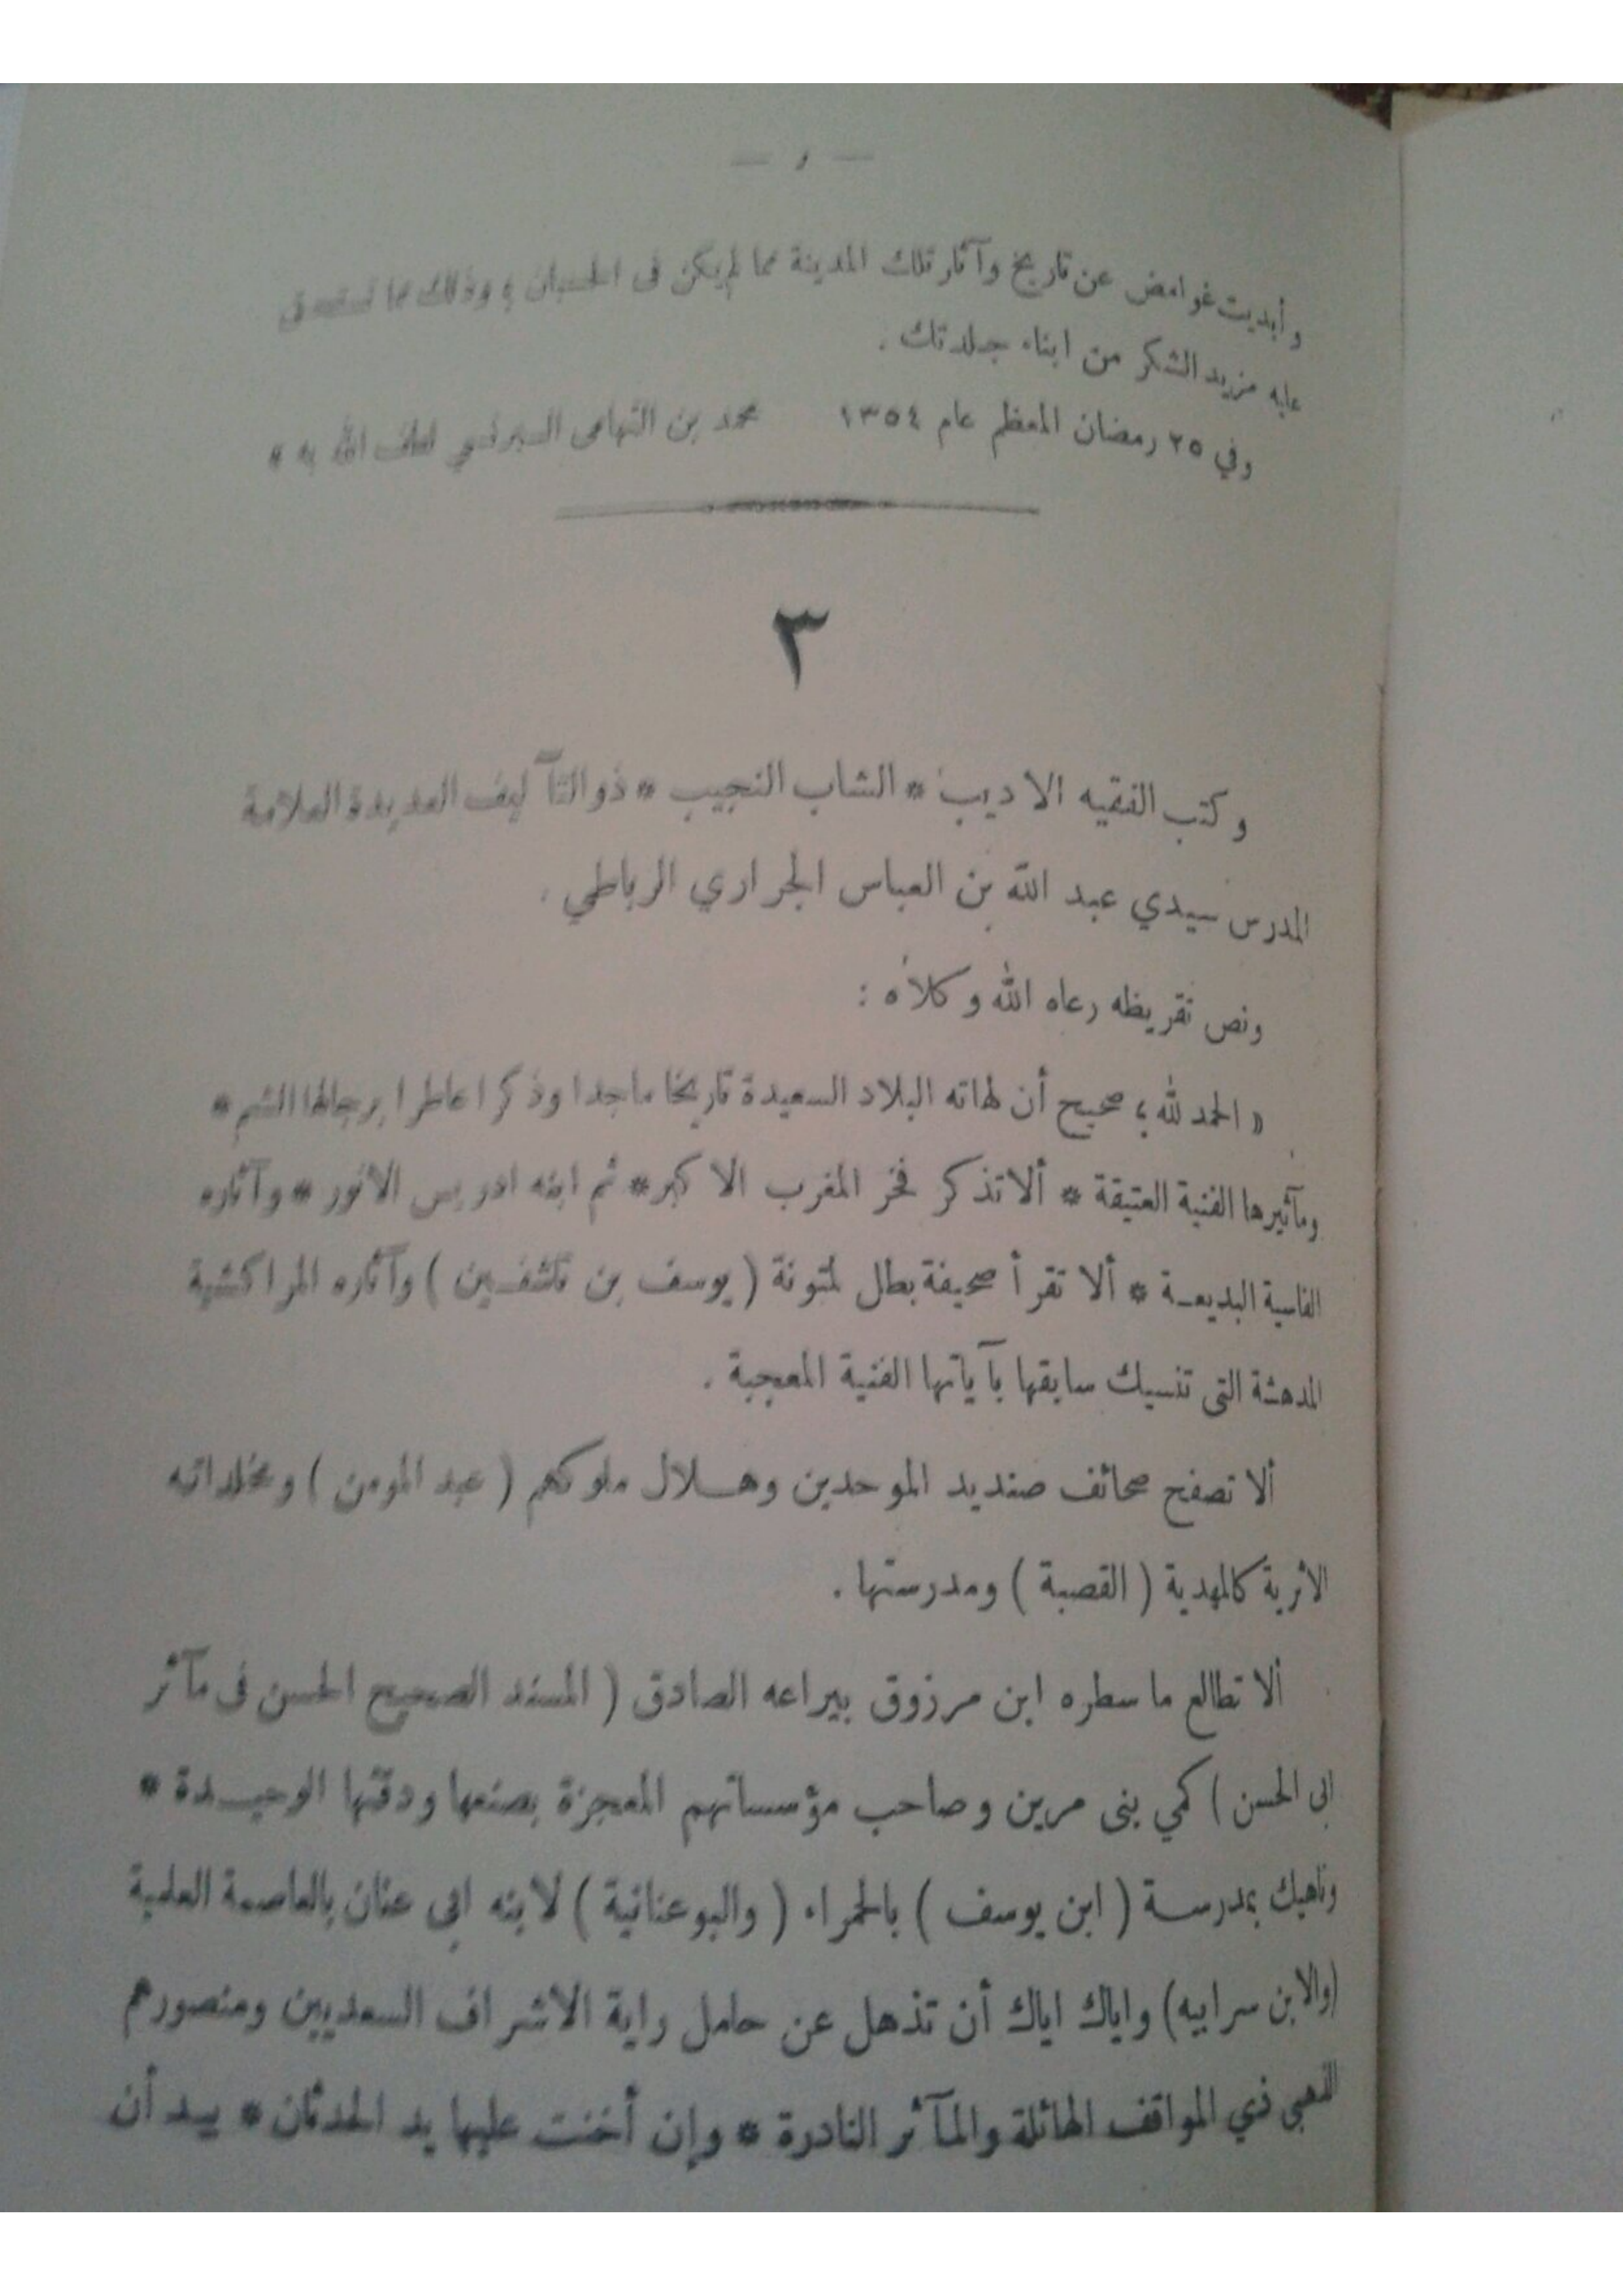 — و —
وأبديت غوامض عن تاريخ وآثار تلك المدينة مما لم يكن فى الحسبان ؛ وذلك مما تستحق
عليه مزيد الشكر من ابناء جلدتك .
وفي ٢٥ رمضان المعظم عام ١٣٥٤ محمد بن التهامى لطف الله به *
٣
وكتب الفقيه الاديب * الشاب النجيب * ذو التآليف العديدة العلامة
المدرس سيدي عبد الله بن العباس الجراري الرباطي .
ونص تقريظه رعاه الله وكلأه :
« الحمد لله ؛ صحيح أن لهاته البلاد السعيدة تاريخا ماجدا وذكرا عاطرا برجالها الشم *
ومآثيرها الفنية العتيقة * ألا تذكر فخر المغرب الاكبر * ثم ابنه ادريس الانور * وآثاره
الفاسية البديعـة * ألا تقرأ صحيفة بطل لمتونة ( يوسف بن تاشفين ) وآثاره المراكشية
المدهشة التى تنسيك سابقها بآياتها الفنية المعجبة .
ألا تصفح صحائف صنديد الموحدين وهـلال ملوكهم ( عبد المومن ) ومخلداته
الاثرية كالمهدية ( القصبة ) ومدرستها .
ألا تطالع ما سطره ابن مرزوق بيراعه الصادق ( المسند الصحيح الحسن فى مآثر
ابى الحسن ) كمي بنى مرين وصاحب مؤسساتهم المعجزة بصنعها ودقتها الوحيـدة *
وناهيك بمدرسـة ( ابن يوسف ) بالحمراء ( والبوعنانية ) لابنه ابى عنان بالعاصمة العلمية
(والابن سر ابيه) واياك اياك أن تذهل عن حامل راية الاشراف السعديين ومنصورهم
الذهبى ذي المواقف الهائلة والمآثر النادرة * وإن أخنت عليها يد الحدثان * بيـد أن